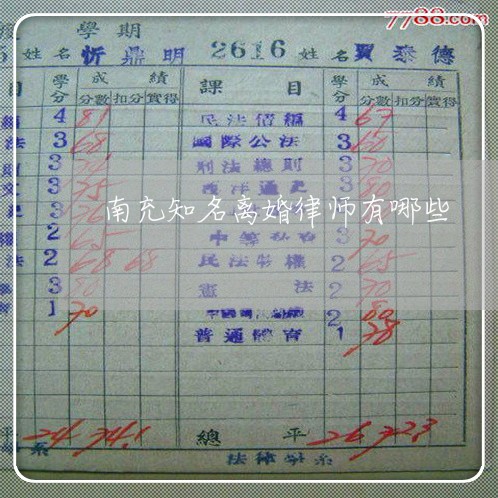 7788.com
學期
姓名 忻鼎明 2616 姓名 賈泰德
目 學分 成績 課目 學分 成績
分數 扣分 實得 分數 扣分 實得
4 81 民法債編 4 67
法 3 68 國際公法 3 60
3 刑法總則 3 70
3 75 西洋通史 3 80
南充知名离婚律师有哪些
2 65 3 70
法 2 68 68 民法物權 2 65
3 80 憲法 2 70
1 70 2 80
普通體育 1 78
平 24 74.1 總平 26 72.3
系 法律學系